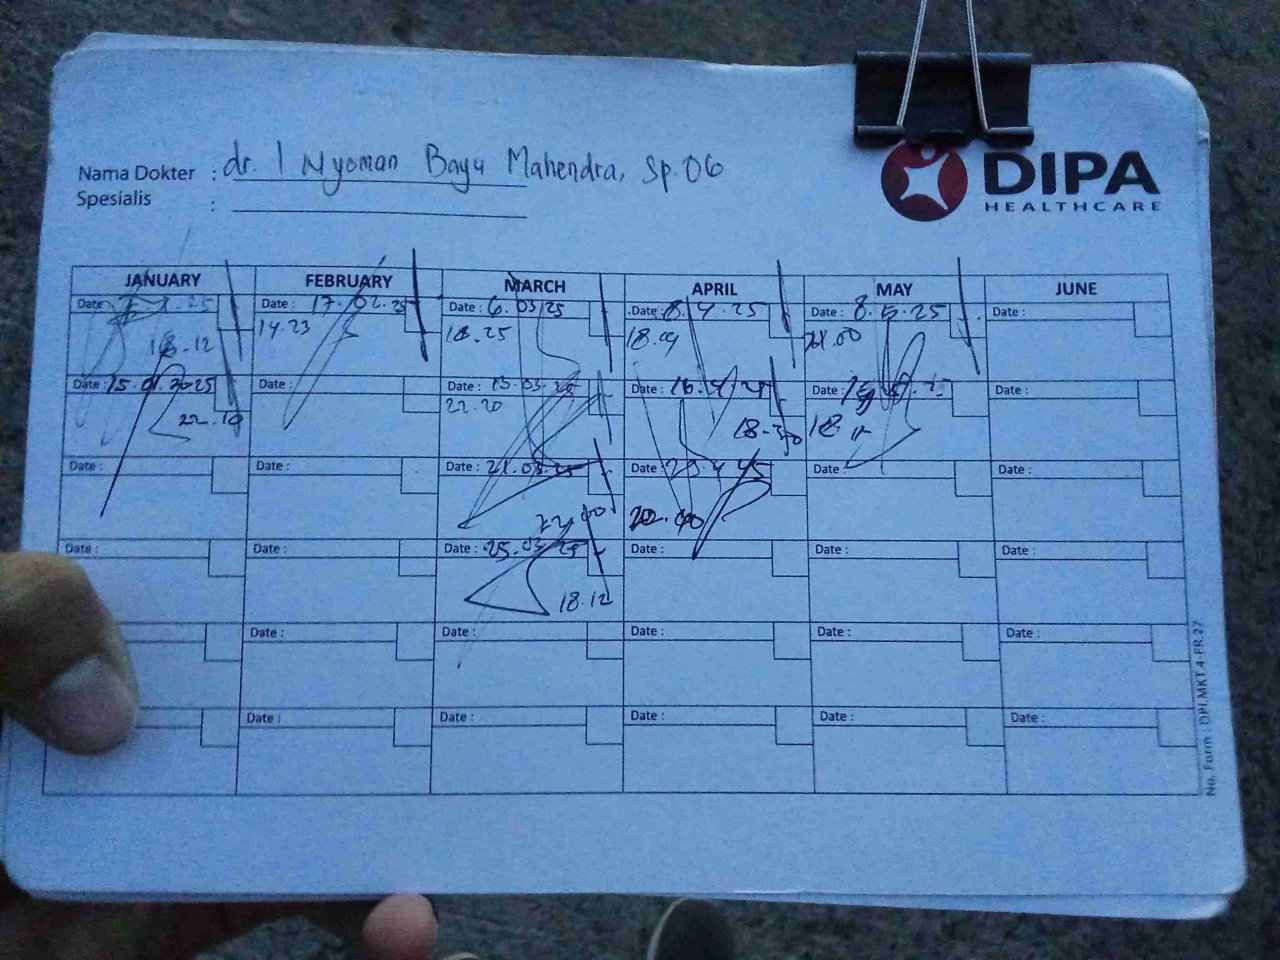 DIPA
HEALTHCARE
Nama Dokter : dr. I Nyoman Bayu Mahendra, Sp.OG
Spesialis :
JANUARY FEBRUARY MARCH APRIL MAY JUNE
Date : Date : 17.02.25 Date : 6.03.25 Date : 8.4.25 Date : 8.5.25 Date :
18.12 14.23 18.25 18.09 21.00
Date : 15.01.2025 Date : Date : 15.03.25 Date : 16.4.25 Date : Date :
22.10 22.20 18.30
Date : Date : Date : 21.03.25 Date : Date : Date :
22.00
Date : Date : Date : 25.03.25 Date : Date : Date :
18.12
Date : Date : Date : Date : Date :
Date : Date : Date : Date : Date :
No. Form : DPI.MKT.4-PR.27